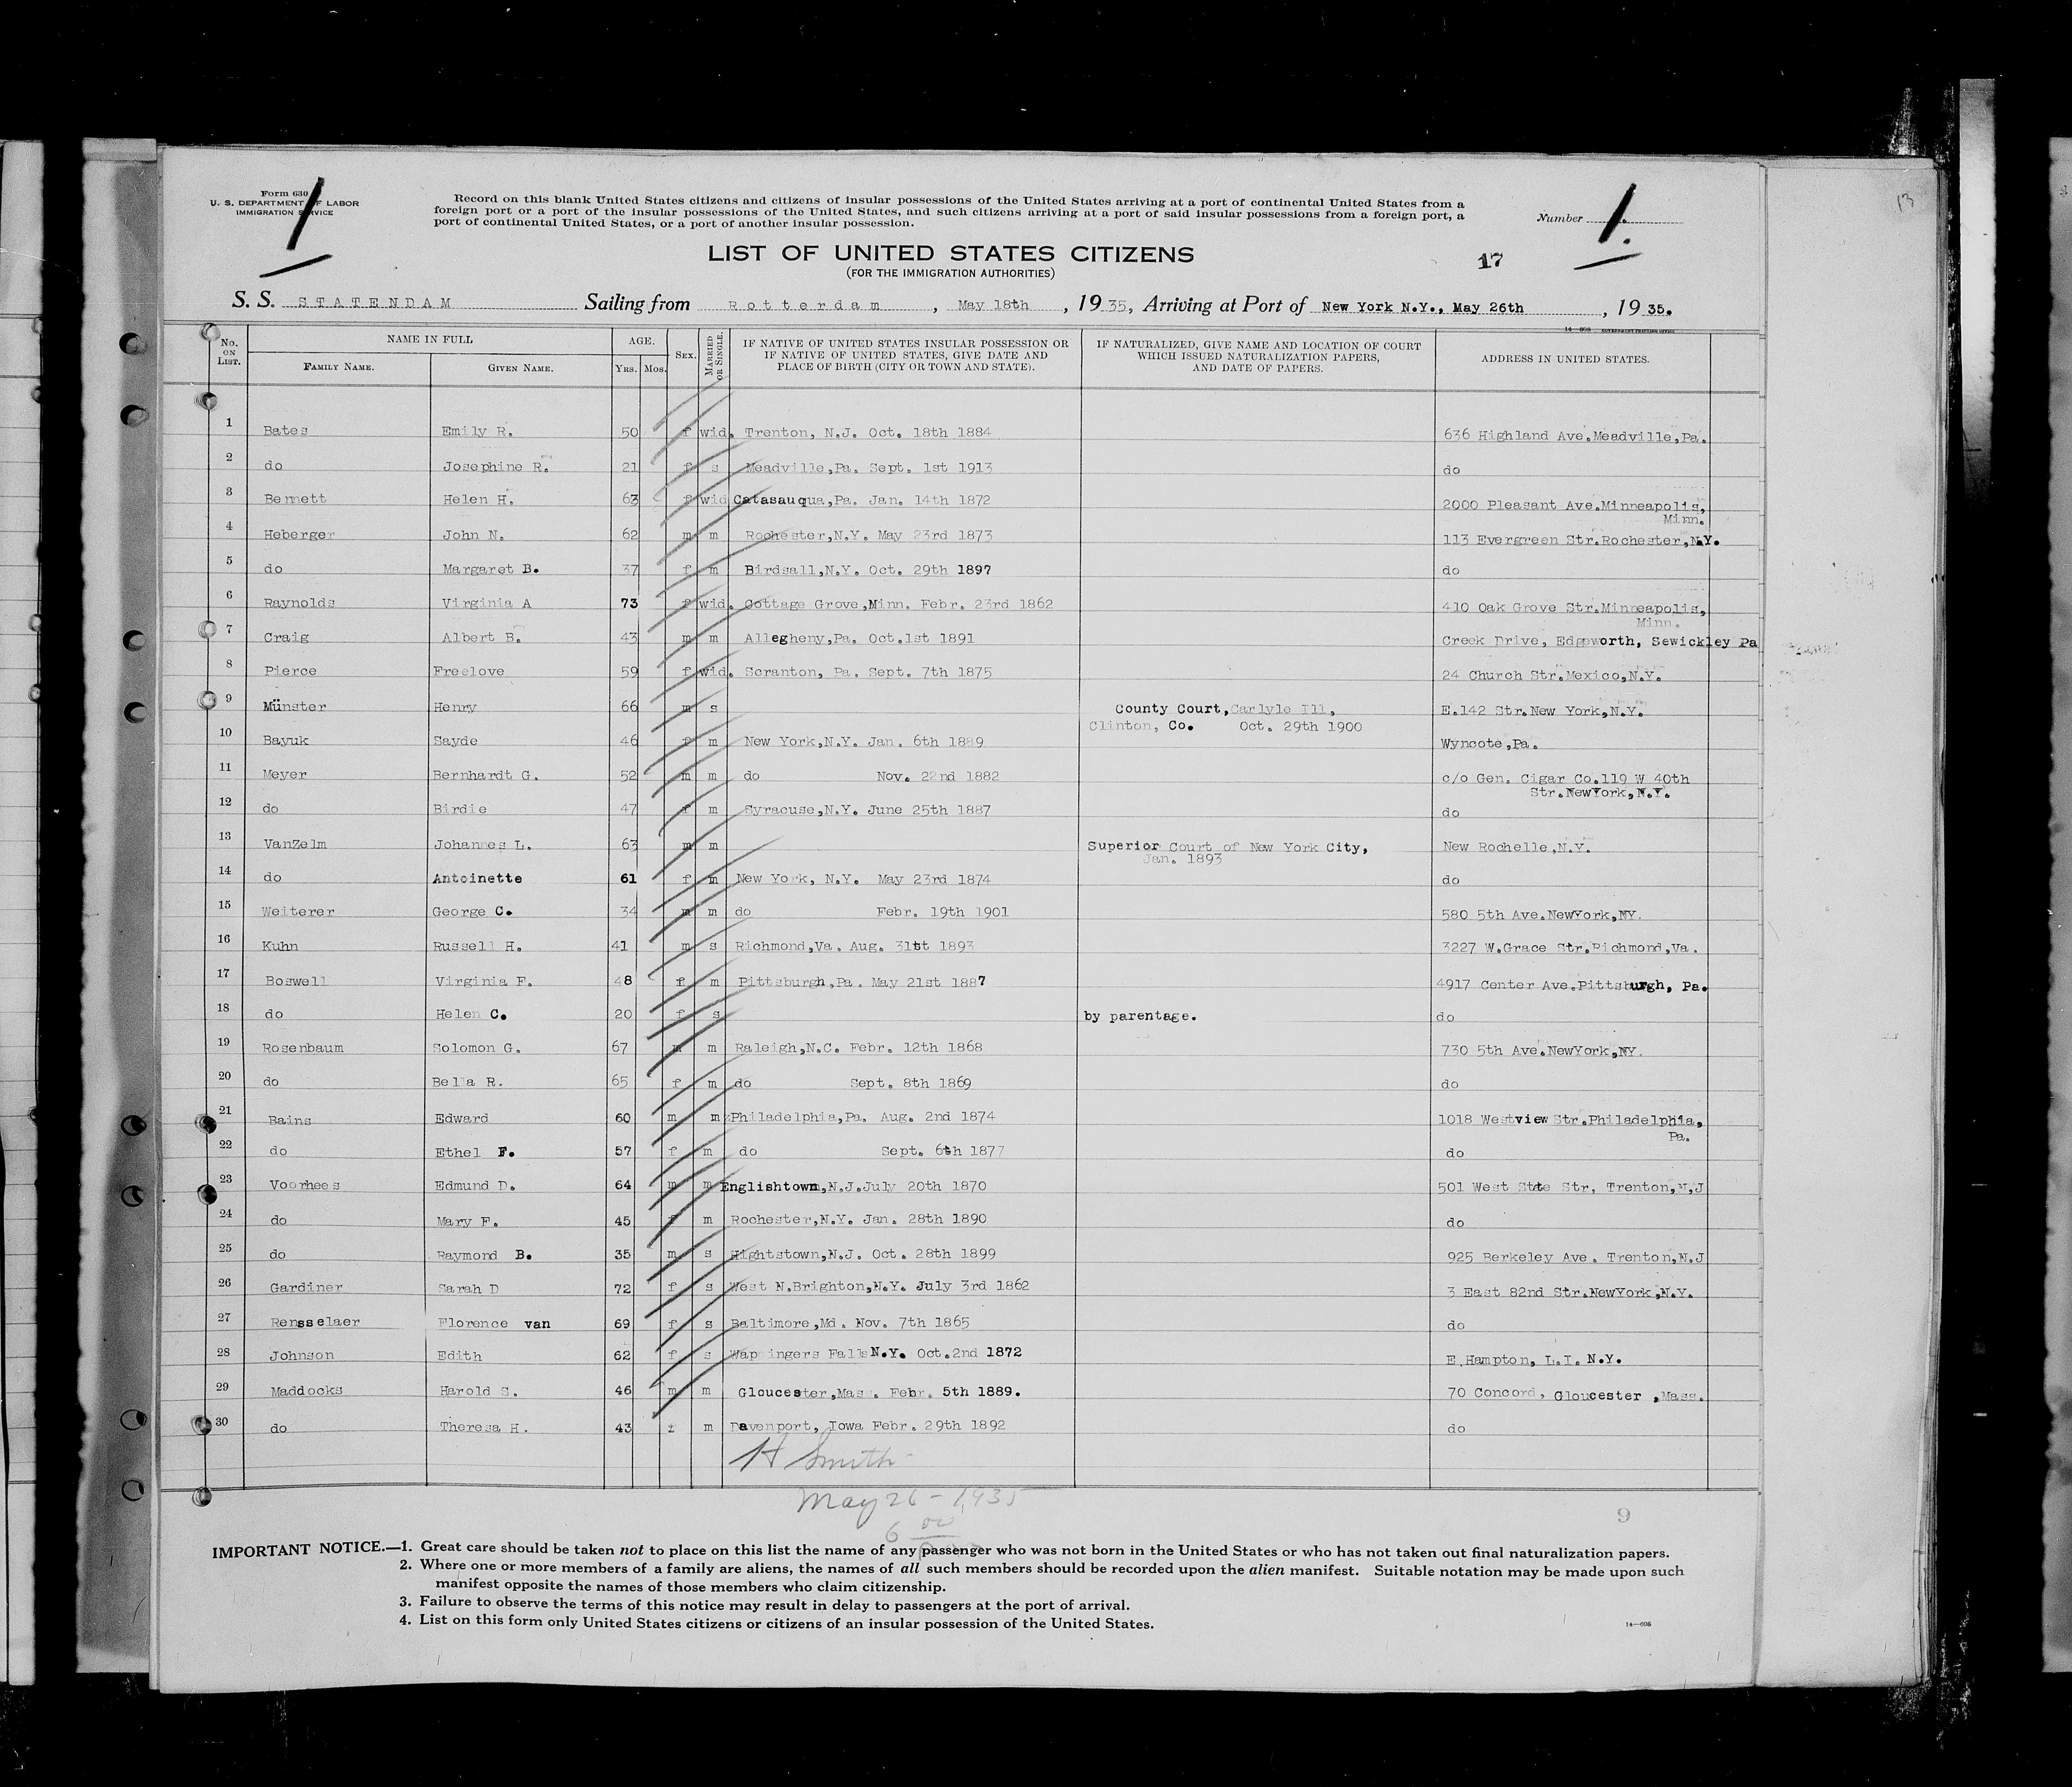 Form 630
U. S. DEPARTMENT OF LABOR
IMMIGRATION SERVICE
1
Record on this blank United States citizens and citizens of insular possessions of the United States arriving at a port of continental United States from a
foreign port or a port of the insular possessions of the United States, and such citizens arriving at a port of said insular possessions from a foreign port, a
port of continental United States, or a port of another insular possession.
Number 1.
13
LIST OF UNITED STATES CITIZENS
(FOR THE IMMIGRATION AUTHORITIES)
17
S. S. STATENDAM Sailing from Rotterdam, May 18th, 1935, Arriving at Port of New York N.Y., May 26th, 1935.
No. ON LIST. NAME IN FULL FAMILY NAME. GIVEN NAME. AGE. YRS. MOS. SEX. MARRIED OR SINGLE. IF NATIVE OF UNITED STATES INSULAR POSSESSION OR IF NATIVE OF UNITED STATES, GIVE DATE AND PLACE OF BIRTH (CITY OR TOWN AND STATE). IF NATURALIZED, GIVE NAME AND LOCATION OF COURT WHICH ISSUED NATURALIZATION PAPERS, AND DATE OF PAPERS. ADDRESS IN UNITED STATES.
1 Bates Emily R. 50 f wid. Trenton, N.J. Oct. 18th 1884 636 Highland Ave.Meadville,Pa.
2 do Josephine R. 21 f s Meadville,Pa. Sept. 1st 1913 do
3 Bennett Helen H. 63 f wid Catasauqua,Pa. Jan. 14th 1872 2000 Pleasant Ave.Minneapolis,
Minn.
4 Heberger John N. 62 m m Rochester,N.Y. May 23rd 1873 113 Evergreen Str.Rochester,N.Y.
5 do Margaret B. 37 f m Birdsall,N.Y. Oct. 29th 1897 do
6 Raynolds Virginia A 73 f wid. Cottage Grove,Minn. Febr. 23rd 1862 410 Oak Grove Str.Minneapolis,
Minn.
7 Craig Albert B. 43 m m Allegheny,Pa. Oct.1st 1891 Creek Drive, Edgeworth, Sewickley Pa
8 Pierce Freelove 59 f wid. Scranton, Pa. Sept. 7th 1875 24 Church Str.Mexico,N.Y.
9 Münster Henry 66 m s County Court,Carlyle Ill, E.142 Str.New York,N.Y.
Clinton, Co. Oct. 29th 1900
10 Bayuk Sayde 46 f m New York,N.Y. Jan. 6th 1889 Wyncote,Pa.
11 Meyer Bernhardt G. 52 m m do Nov. 22nd 1882 c/o Gen. Cigar Co.119 W 40th
Str.NewYork,N.Y.
12 do Birdie 47 f m Syracuse,N.Y. June 25th 1887 do
13 VanZelm Johannes L. 63 m m Superior Court of New York City, New Rochelle,N.Y.
Jan. 1893
14 do Antoinette 61 f m New York, N.Y. May 23rd 1874 do
15 Weiterer George C. 34 m m do Febr. 19th 1901 580 5th Ave.NewYork,NY.
16 Kuhn Russell H. 41 m s Richmond,Va. Aug. 31st 1893 3227 W.Grace Str.Richmond,Va.
17 Boswell Virginia F. 48 f m Pittsburgh,Pa. May 21st 1887 4917 Center Ave.Pittsburgh, Pa.
18 do Helen C. 20 f s by parentage. do
19 Rosenbaum Solomon G. 67 m m Raleigh,N.C. Febr. 12th 1868 730 5th Ave.NewYork,NY.
20 do Bella R. 65 f m do Sept. 8th 1869 do
21 Bains Edward 60 m m Philadelphia,Pa. Aug. 2nd 1874 1018 Westview Str.Philadelphia,
Pa.
22 do Ethel F. 57 f m do Sept. 6th 1877 do
23 Voorhees Edmund D. 64 m m Englishtown,N.J.July 20th 1870 501 West State Str, Trenton,N,J
24 do Mary F. 45 f m Rochester,N.Y. Jan. 28th 1890 do
25 do Raymond B. 35 m s Hightstown,N.J. Oct. 28th 1899 925 Berkeley Ave. Trenton,N.J
26 Gardiner Sarah D 72 f s West N.Brighton,N.Y. July 3rd 1862 3 East 82nd Str.NewYork,N.Y.
27 Rensselaer Florence van 69 f s Baltimore,Md. Nov. 7th 1865 do
28 Johnson Edith 62 f s Wappingers Falls N.Y. Oct.2nd 1872 E.Hampton, L.I. N.Y.
29 Maddocks Harold S. 46 m m Gloucester,Mass. Febr. 5th 1889. 70 Concord, Gloucester ,Mass.
30 do Theresa H. 43 f m Davenport, Iowa Febr. 29th 1892 do
H Smith
May 26 - 1935
6 00
9
IMPORTANT NOTICE.—1. Great care should be taken not to place on this list the name of any passenger who was not born in the United States or who has not taken out final naturalization papers.
2. Where one or more members of a family are aliens, the names of all such members should be recorded upon the alien manifest. Suitable notation may be made upon such
manifest opposite the names of those members who claim citizenship.
3. Failure to observe the terms of this notice may result in delay to passengers at the port of arrival.
4. List on this form only United States citizens or citizens of an insular possession of the United States.